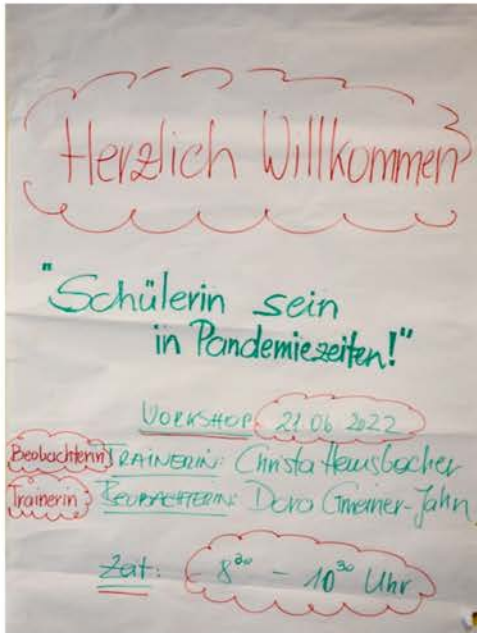 Herzlich Willkommen
"Schülerin sein
in Pandemiezeiten!"
WORKSHOP: 21.06 2022
Beobachterin TRAINERIN: Christa
Trainerin BEOBACHTERIN: Dora Gmeiner-Jahn
Zeit: 8³⁰ - 10³⁰ Uhr